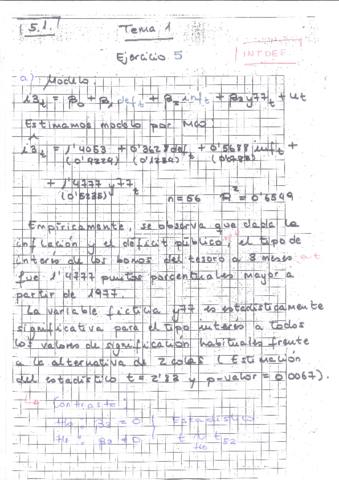 5.1.
Tema 1
Ejercicio 5
INTDEF
a) Modelo:
i3t = β0 + β1 deft + β2 inft + β3 y77t + ut
Estimamos modelo por MCO:
i3t = 1'4053 + 0'3628 deft + 0'5688 inft +
+ 1'4777 y77t
n=56 R² = 0'6549
Empíricamente, se observa que dada la
inflación y el déficit público, el tipo de
interés de los bonos del tesoro a 3 meses
fue 1'4777 puntos porcentuales mayor a
partir de 1977.
La variable ficticia y77 es estadísticamente
significativa para el tipo interés a todos
los valores de significación habituales frente
a la alternativa de 2 colas (Estimación
del estadístico t = 2'82 y p-valor = 0'0067).
Contraste:
H0: β3 = 0 Estadístico
H1: β3 ≠ 0 t ~ t52
H0